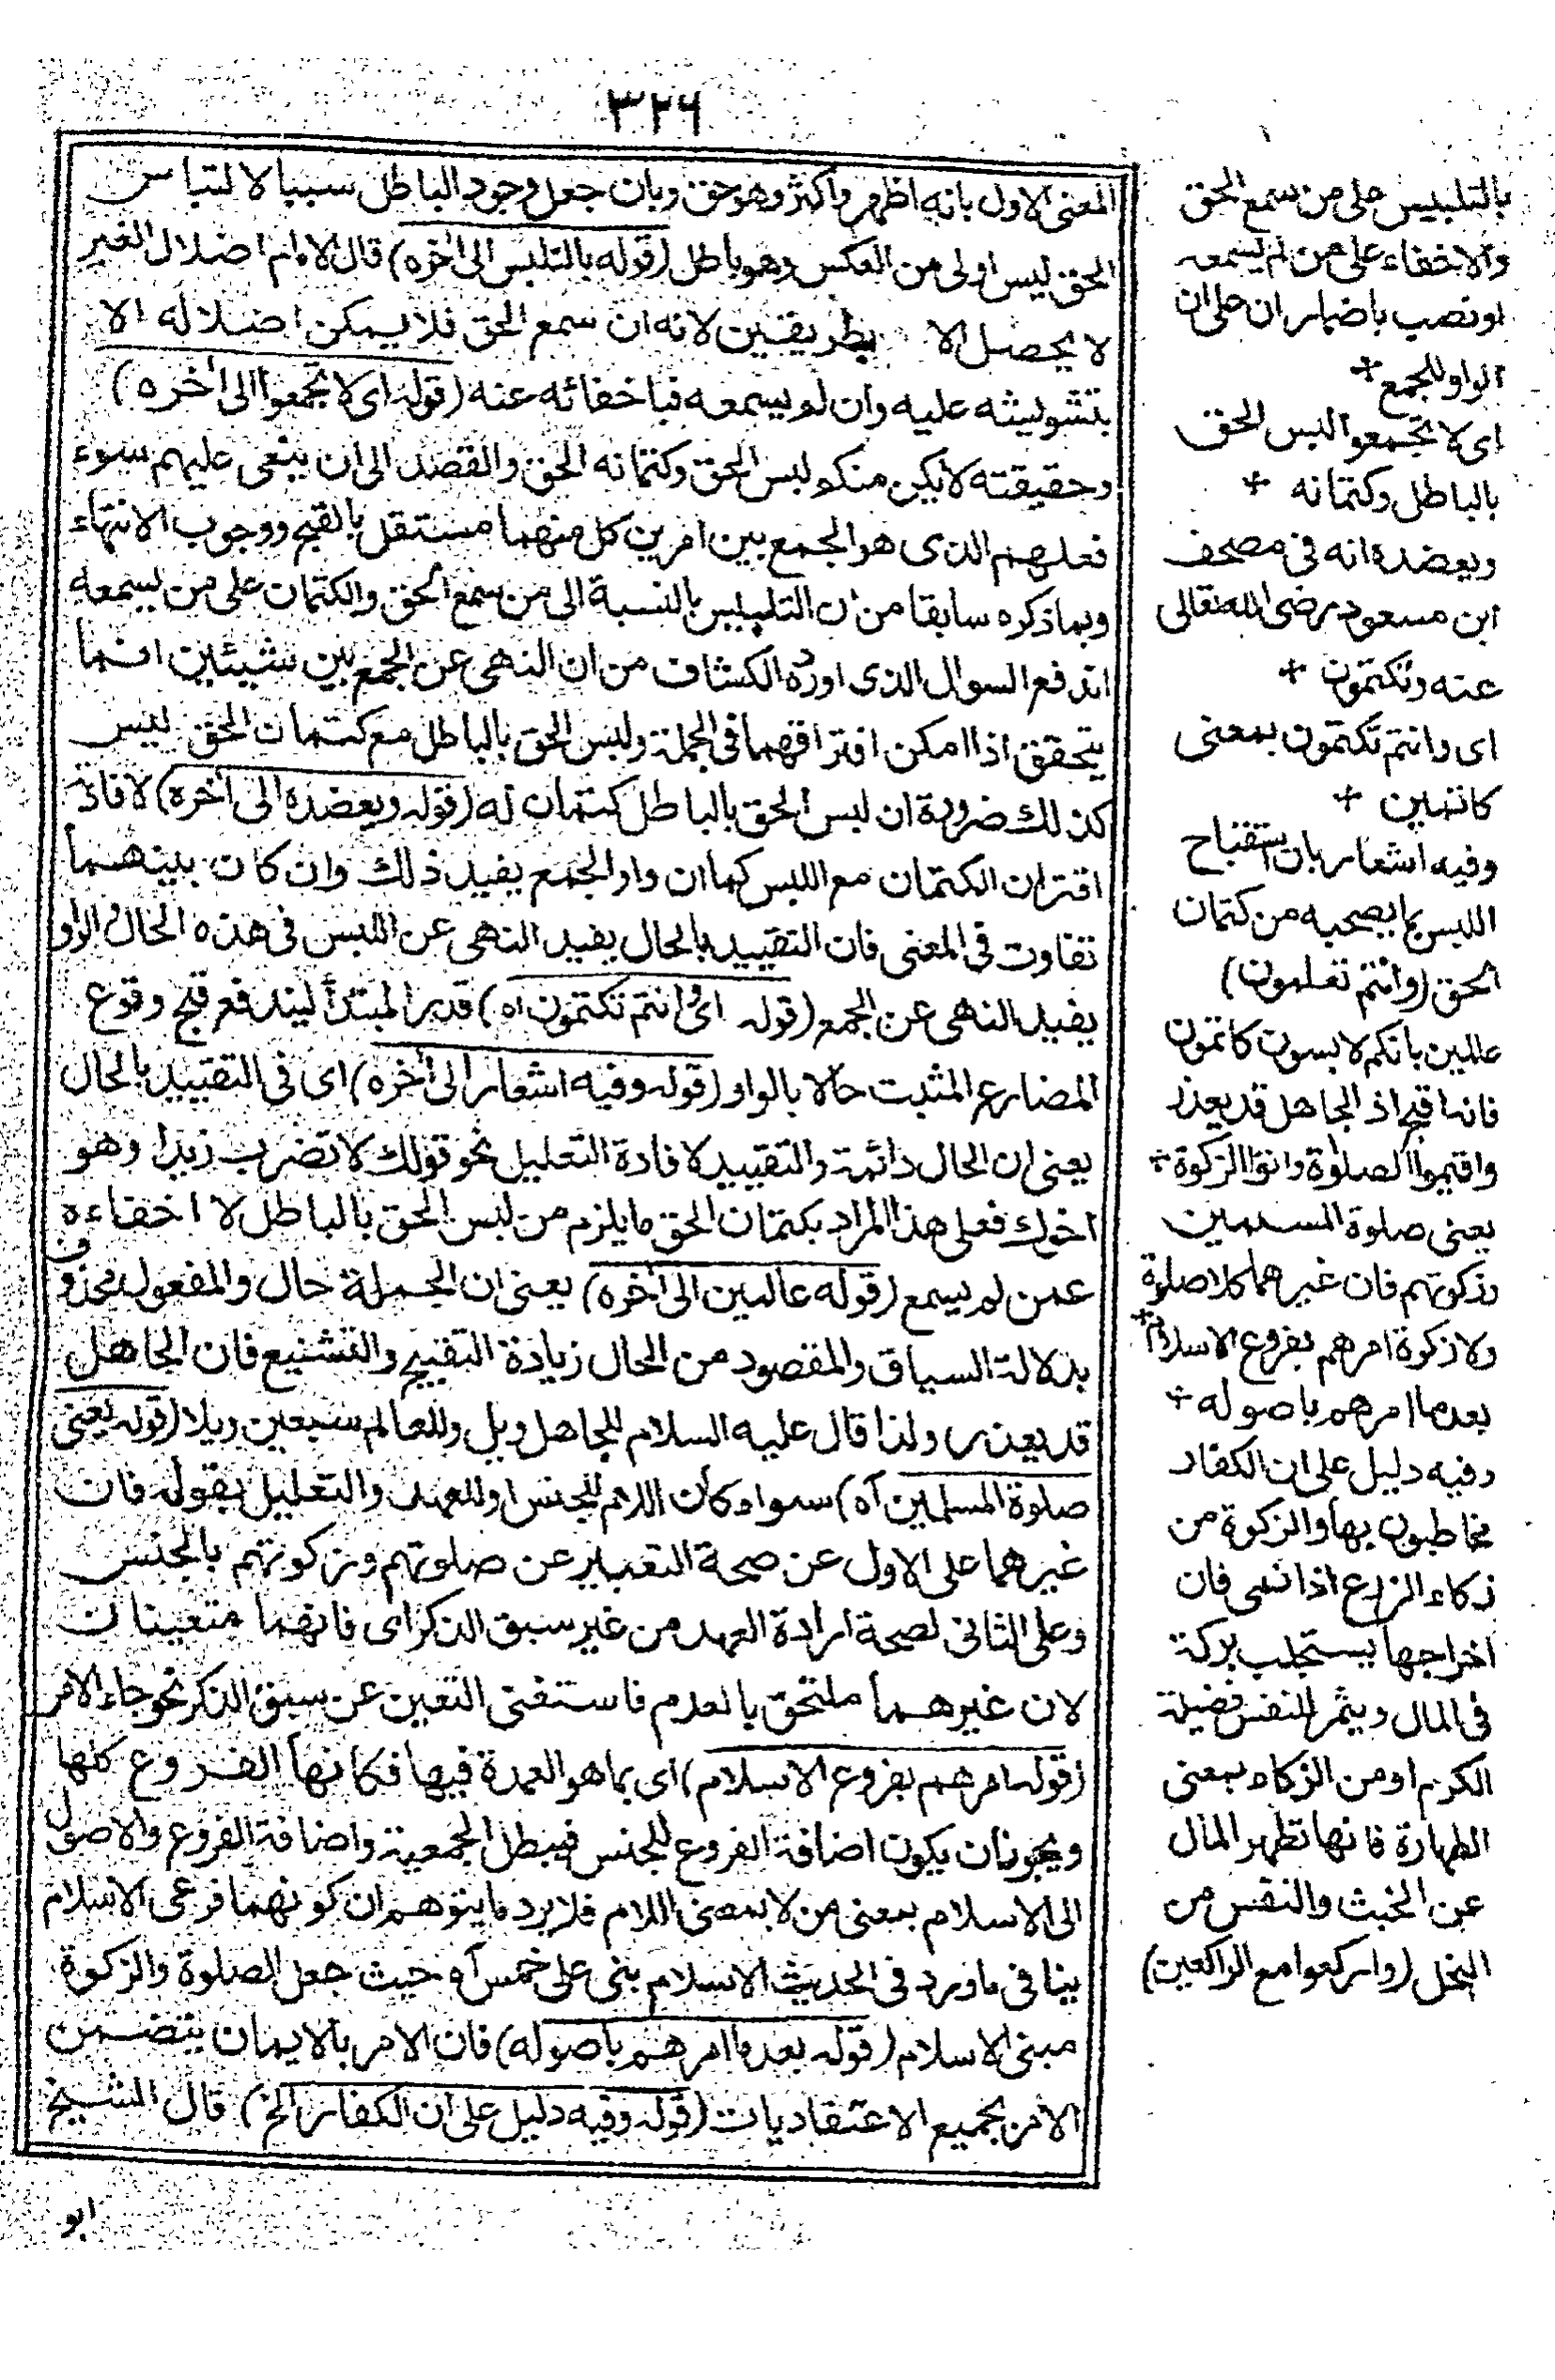 ٣٢٦
المعنى الاول بانه اظهر واكثر وهو حق وبان جعل وجود الباطل سببا لالتباس
الحق ليس اولى من العكس وهو باطل (قوله بالتلبس الى اخره) قال الامام اضلال الغير
لا يحصل الا بطريقين لانه ان سمع الحق فلا يمكن اضلاله الا
بتشويشه عليه وان لم يسمعه فباخفائه عنه (قوله اى لا تجمعوا الى اخره)
وحقيقته لا يكن منكم لبس الحق وكتمانه الحق والقصد الى ان ينعى عليهم سوء
فعلهم الذى هو الجمع بين امرين كل منهما مستقل بالقبح ووجوب الانتهاء
وبما ذكره سابقا من ان التلبيس بالنسبة الى من سمع الحق والكتمان على من يسمعه
اندفع السوال الذى اورده الكشاف من ان النهى عن الجمع بين شيئين انما
يتحقق اذا امكن افتراقهما فى الجملة ولبس الحق بالباطل مع كتمان الحق ليس
كذلك ضرورة ان لبس الحق بالباطل كتمان له (قوله ويعضده الى اخره) لافادة
اقتران الكتمان مع اللبس كما ان واو الجمع يفيد ذلك وان كان بينهما
تفاوت فى المعنى فان التقييد بالحال يفيد النهى عن اللبس فى هذه الحال والواو
يفيد النهى عن الجمع (قوله اى وانتم تكتمون اه) قدر المبتدأ ليندفع قبح وقوع
المضارع المثبت حالا بالواو (قوله وفيه اشعار الى اخره) اى فى التقييد بالحال
يعنى ان الحال دائمة والتقييد لافادة التعليل نحو قولك لا تضرب زيدا وهو
اخوك فعلى هذا المراد بكتمان الحق ما يلزم من لبس الحق بالباطل لا اخفاءه
عمن لم يسمع (قوله عالمين الى اخره) يعنى ان الجملة حال والمفعول محذوف
بدلالة السياق والمقصود من الحال زيادة التقبيح والتشنيع فان الجاهل
قد يعذر ولذا قال عليه السلام للجاهل ويل وللعالم سبعين ويلا (قوله يعنى
صلوة المسلمين آه) سواء كان اللام للجنس او للعهد والتعليل بقوله فان
غيرهما على الاول عن صحة التعبير عن صلوتهم وزكوتهم بالجنس
وعلى الثانى لصحة ارادة العهد من غير سبق الذكر اى فانهما متعينان
لان غيرهما ملتحق بالعدم فاستغنى التعين عن سبق الذكر نحو جاء الامر
(قوله امرهم بفروع الاسلام) اى بما هو العمدة فيها فكانها الفروع كلها
ويجوز ان يكون اضافة الفروع للجنس فيبطل الجمعية واضافة الفروع والاصول
الى الاسلام بمعنى من لا بمعنى اللام فلا يرد ما يتوهم ان كونهما فرعى الاسلام
ينافى ما ورد فى الحديث الاسلام بنى على خمس آه حيث جعل الصلوة والزكوة
مبنى الاسلام (قوله بعد ما امرهم باصوله) فان الامر بالايمان يتضمن
الامر بجميع الاعتقاديات (قوله وفيه دليل على ان الكفار الخ) قال الشيخ
ابو
بالتلبيس على من سمع الحق
والاخفاء على من لم يسمعه
او نصب باضمار ان على ان
الواو للجمع +
اى لا تجمعوا لبس الحق
بالباطل وكتمانه +
ويعضده انه فى مصحف
ابن مسعود رضى الله تعالى
عنه وتكتمون +
اى وانتم تكتمون بمعنى
كاتمين +
وفيه اشعار بان استقباح
اللبس بما يصحبه من كتمان
الحق (وانتم تعلمون)
عالمين بانكم لابسون كاتمون
فانه اقبح اذ الجاهل قد يعذر
واقيموا الصلوة واتوا الزكوة +
يعنى صلوة المسلمين
وزكوتهم فان غيرهما كلا صلوة
ولا زكوة امرهم بفروع الاسلام +
بعد ما امرهم باصوله +
وفيه دليل على ان الكفار
مخاطبون بها والزكوة من
زكاء الزرع اذا نمى فان
اخراجها يستجلب بركة
فى المال ويثمر للنفس فضيلة
الكرم او من الزكاء بمعنى
الطهارة فانها تطهر المال
عن الخبث والنفس من
البخل (واركعوا مع الراكعين)